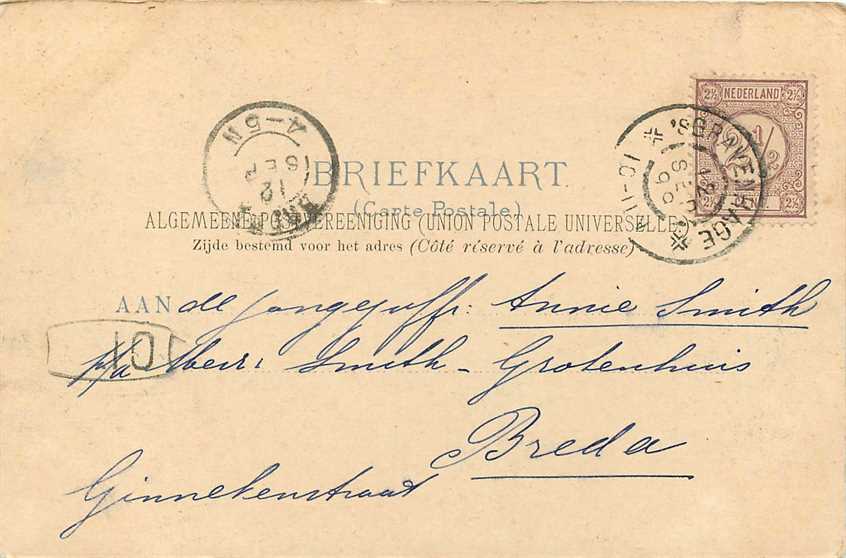 NEDERLAND
2½ 2½
'SGRAVENHAGE
12 SEP 99
10-11V
4-5N
12 SEP
BRIEFKAART
(Carte Postale)
ALGEMEENE POSTVEREENIGING (UNION POSTALE UNIVERSELLE)
Zijde bestemd voor het adres (Côté réservé à l'adresse)
AAN de Jongejuffr: Annie Smith
101
p/a Smith - Grotenhuis
Breda
Ginnekenstraat